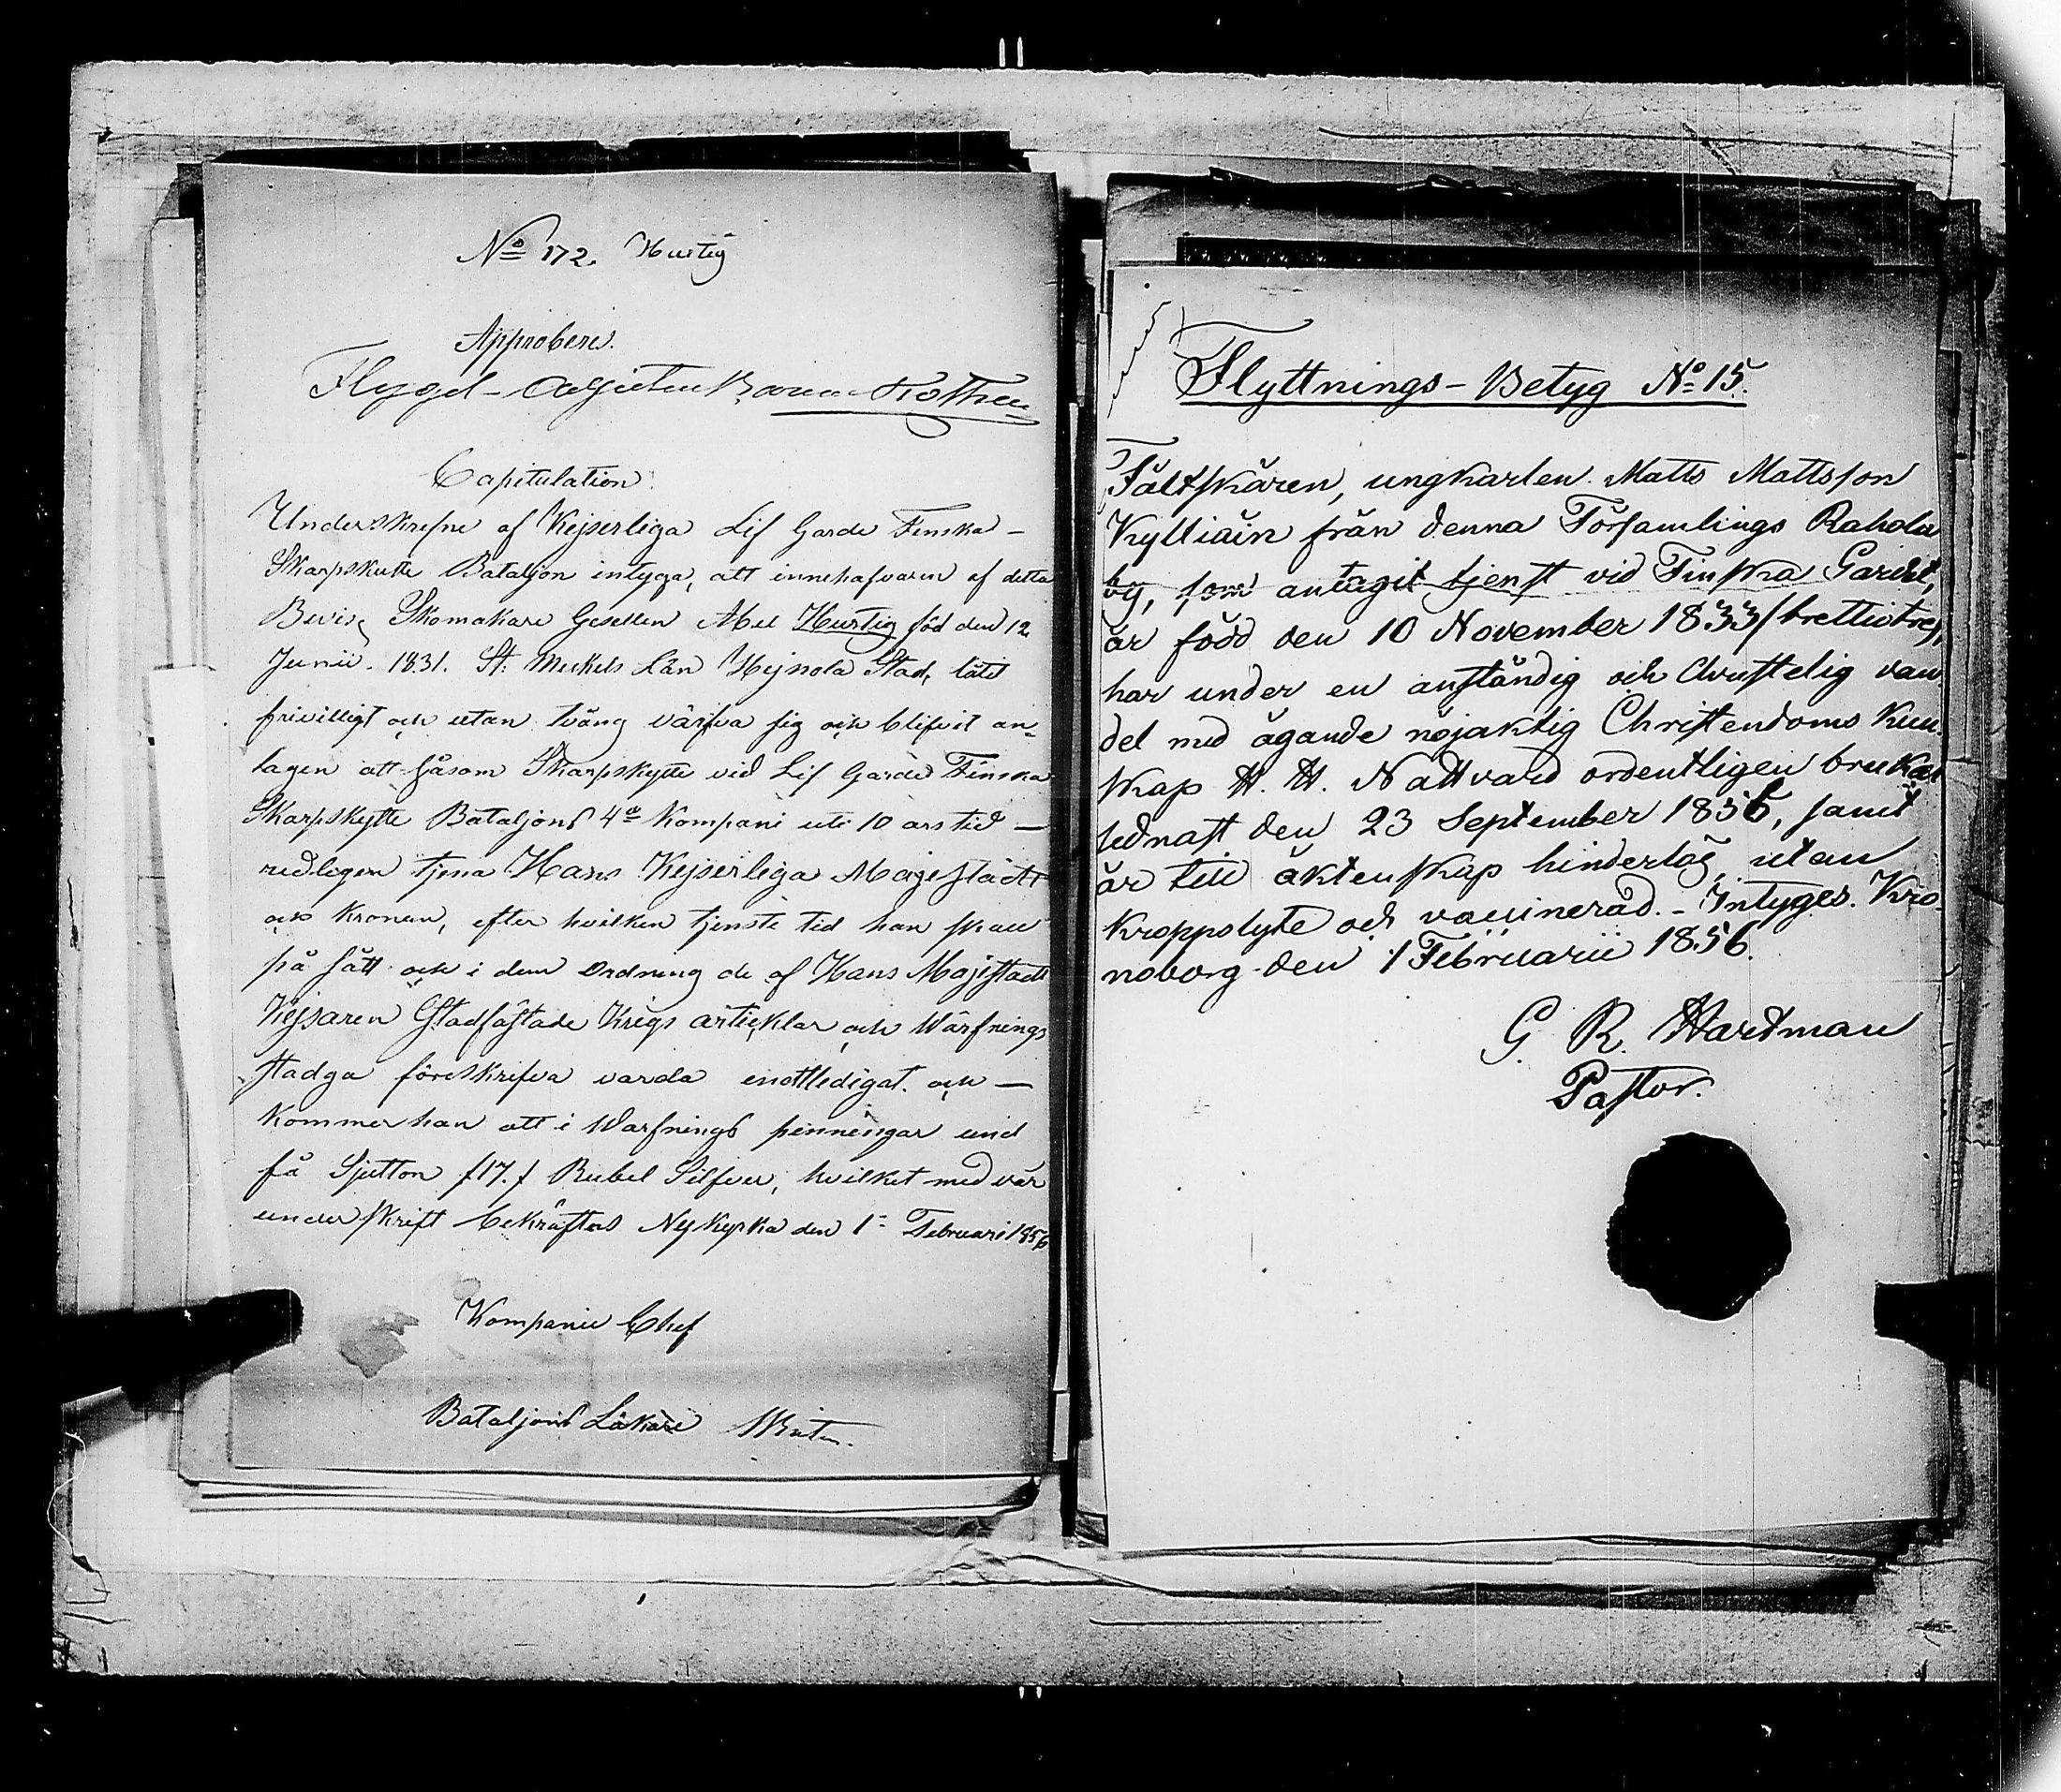 No 172. Hurtig
Approberes.
Flygel-Adjuten Baron Kothen
Capitulation
Underskrefne af Kejserliga Lif Garde Finska -
Skarpskutte Bataljon intyga, att innehafvaren af detta
Bevis, Skomakare Gesellen Abel Hurtig föd den 12
Junii. 1831. St. Mickels Län Hejnola Stad, låtit
frivilligt och utan tvång värfva sig och blifvit an-
tagen att såsom Skarpskytte vid Lif Garde Finska
Skarpskytte Bataljons 4e Kompani uti 10 ars tid -
redligen tjena Hans Kejserliga Majestädt
och Kronan, efter hvilken tjenste tid han skall
på sätt och i den Ordning de af Hans Majestädt
Kejsaren Stadfästade Krigs artieklar och Wärfnings
stadga föreskrifva varda entledigat. och -
Kommer han att i Warfnings penningar und
få Sjutton /17./ Rubel Silfver, hvilket med vår
underskrift bekräftas Nykyrka den 1e Februari 1856
Kompanie Chef
Bataljons Läkare
Flyttnings-Betyg No 15.
Fältskären, ungkarlen Matts Mattsson
Kylliäin från denna Församlings Rahola
by, som antagit tjenst vid Finska Gardet,
är född den 10 November 1833/trettiotre/,
har under en anständig och Christelig van-
del med ägande nöjaktig Christendoms Kun-
skap H. H. Nattvard ordentligen brukat
sednast den 23 September 1855, samt
är till äktenskap hinderlös, utan
kroppslyte och vaccinerad. - Intyges. Kro-
noborg den 1 Februarii 1856.
G. R. Hardman
Pastor.